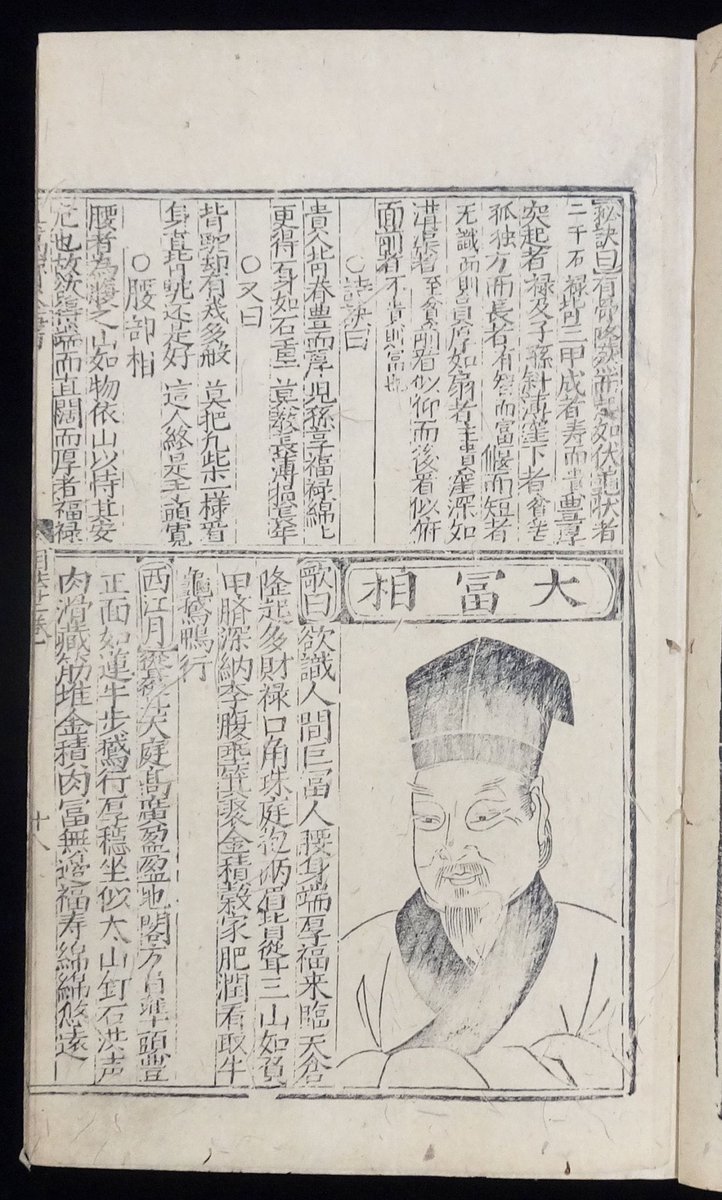 秘訣曰有骨隆然而起如伏龜状者
二千石禄背三甲成者寿而貴豊厚
突起者禄及子孫斜薄窪下者貧苦
孤独方而長者有智而富偃而短者
无識而則員厚如扇者主貴窪深如
溝渠者至貧前看似仰而後看似俯
面前者不貴則富也
○詩訣曰
貴人背脊豊而厚児孫享福禄綿々
更得石身如石重莫教長薄損壽年
○又曰
背馱却有幾多般莫把九柴一様看
這人終是主頭寛
○腰部相
腰者為腹之山如物依山以恃其安
危也故欲端而直闊而厚者福禄
大富相
歌曰欲識人間巨富人腰身端厚福来臨天倉
隆起多財禄口角珠庭抱兩眉背聳三山如負
甲臍深納李腹垂箕聚金積穀家肥潤看取牛
龜鵞鴨行
西江月天庭高廣盈盈地閣方員準頭豊
正面如蓮牛步鵞行厚穏坐似太山釘石洪声
肉滑藏筋堆金積肉富無邊福寿綿綿悠遠
十八